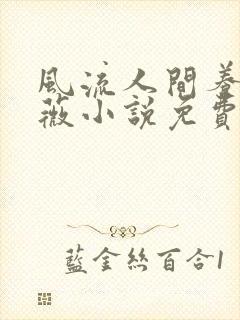 風流人間蓉
薇小說免費
藍金絲百合1